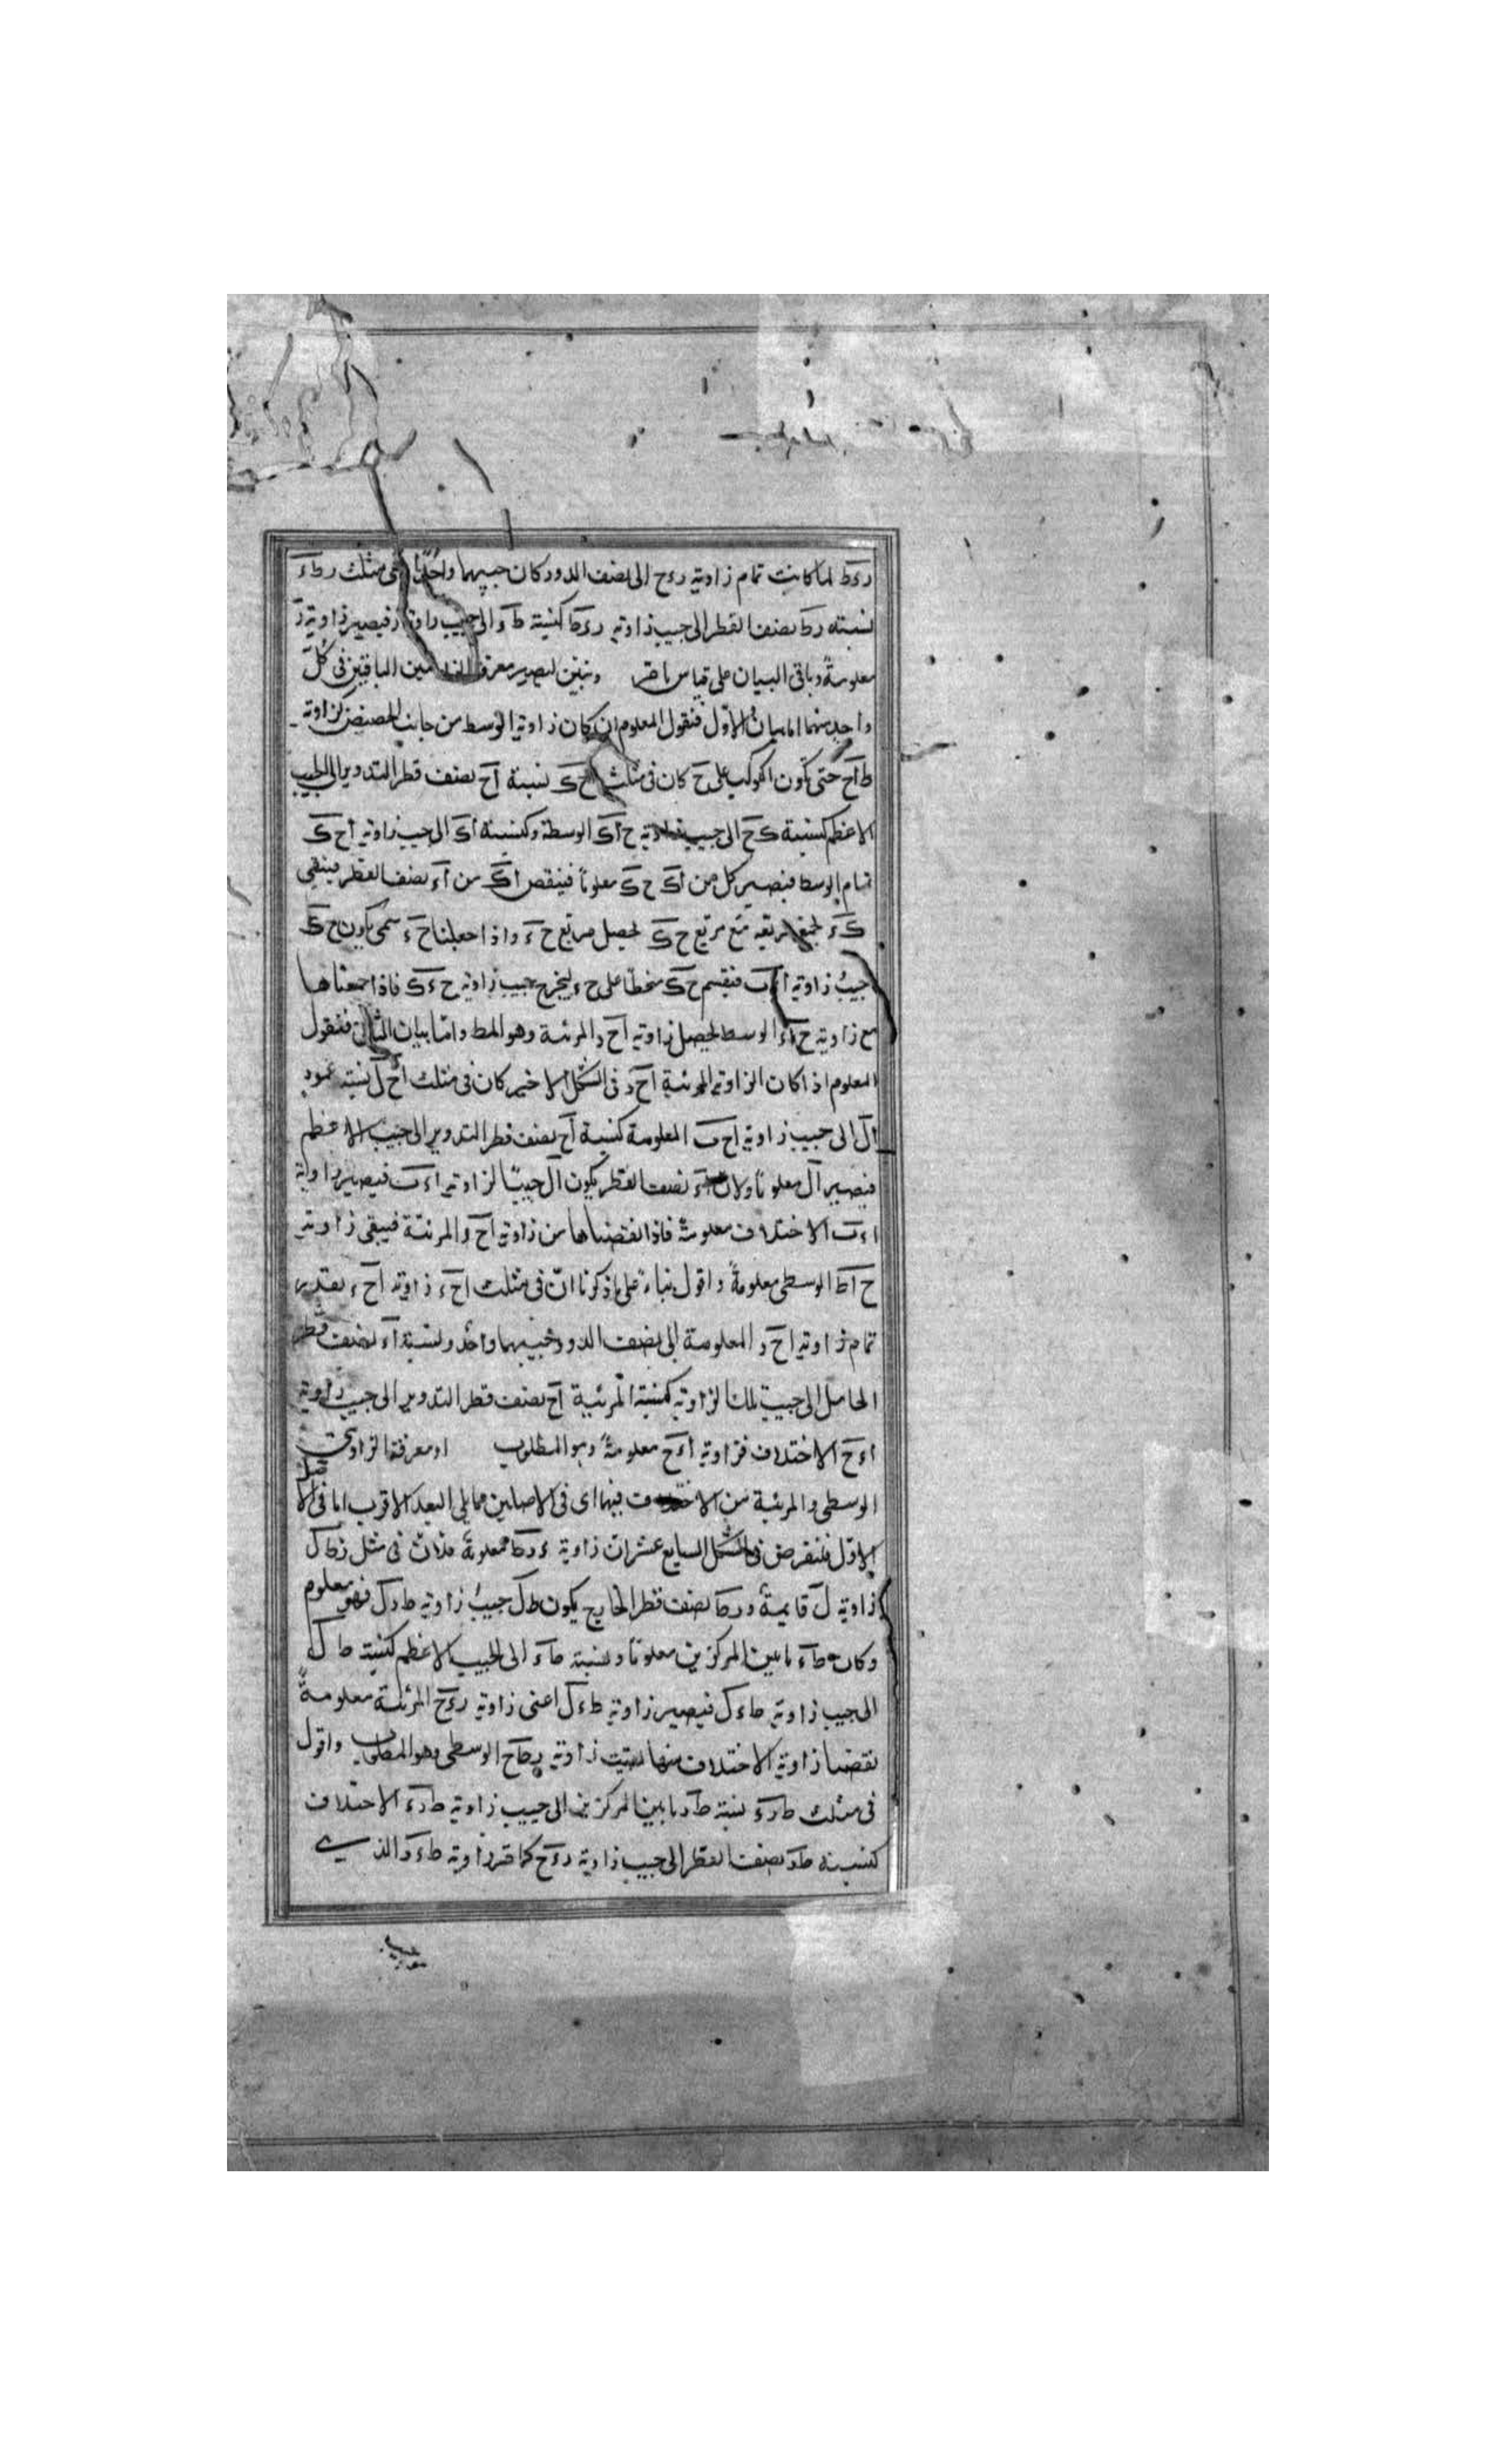 رءط لما كانت تمام زاوية رءح الى نصف الدور كان جيبهما واحدا ففى مثلث رطء
نسبته رط نصف القطر الى جيب زاوية رءط كنسبة طء الى جيب زاوية ر فيصير زاوية ر
معلومة وباقى البيان على قياس مامر ونبين لتصير معرفة القسمين الباقيين فى كل
واحد منهما اما بيان الاول فنقول المعلوم ان كان زاوية الوسط من جانب الحضيض كزاوية
طاح حتى يكون الكوكب على ح كان فى مثلث احك نسبة اح نصف قطر التدوير الى الجيب
الاعظم كنسبة كح الى جيب زاوية حاك الوسطة وكنسبة اك الى جيب زاوية احك
تمام الوسط فيصير كل من اك حك معلوما فينقص اك من اء نصف القطر فيبقى
كء نجمع مربعه مع مربع حك يحصل مربع حء واذا جعلنا حء ستمى يكون حك
جيب زاوية اءب فيقسم حك منحطا على حء ليخرج جيب زاوية حءك فاذا جمعناها
مع زاوية حاء الوسط يحصل زاوية اح د المرئية وهو المط واما بيان الثانى فنقول
المعلوم اذا كان الزاوية المرئية احد فى الشكل الاخير كان فى مثلث احل نسبة عمود
ال الى جيب زاوية احب المعلومة كنسبة اح نصف قطر التدوير الى جيب الاعظم
فيصير ال معلوما ولان اء نصف القطر يكون ال جيبا لزاوية اءب فيصير زاوية
اءب الاختلاف معلومة فاذا نقصناها من زاوية اح د المرئية فيبقى زاوية
حاط الوسطى معلومة واقول بناء على ما ذكرنا ان فى مثلث احء زاوية احء بقدر
تمام زاوية اح د المعلومة الى نصف الدور فجيبهما واحد ونسبة اء نصف قطر
الحامل الى جيب تلك الزاوية كنسبة المرئية اح نصف قطر التدوير الى جيب زاوية
اءح الاختلاف فزاوية اءح معلومة وهو المطلوب او معرفة الزاويتين
الوسطى والمرئية من الاختلاف فيهما اى فى الاصلين مما يلى البعد الاقرب اما فى الاصل
الاول فلنفرض فى الشكل السابع عشر ان زاوية ءرط معلومة فلان فى مثل زطل
زاوية ل قايمة ورط نصف قطر الخارج يكون طل جيب زاوية طرل فهو معلوم
وكان طء ما بين المركزين معلوما ونسبة طء الى الجيب الاعظم كنسبة طل
الى جيب زاوية طءل فيصير زاوية طءل اعنى زاوية رءح المرئية معلومة
نقصنا زاوية الاختلاف منها بقيت زاوية رطح الوسطى وهو المطلوب واقول
فى مثلث طرء نسبة طء ما بين المركزين الى جيب زاوية طرء الاختلاف
كنسبة طر نصف القطر الى جيب زاوية رءح كما مر زاوية طءر الذى